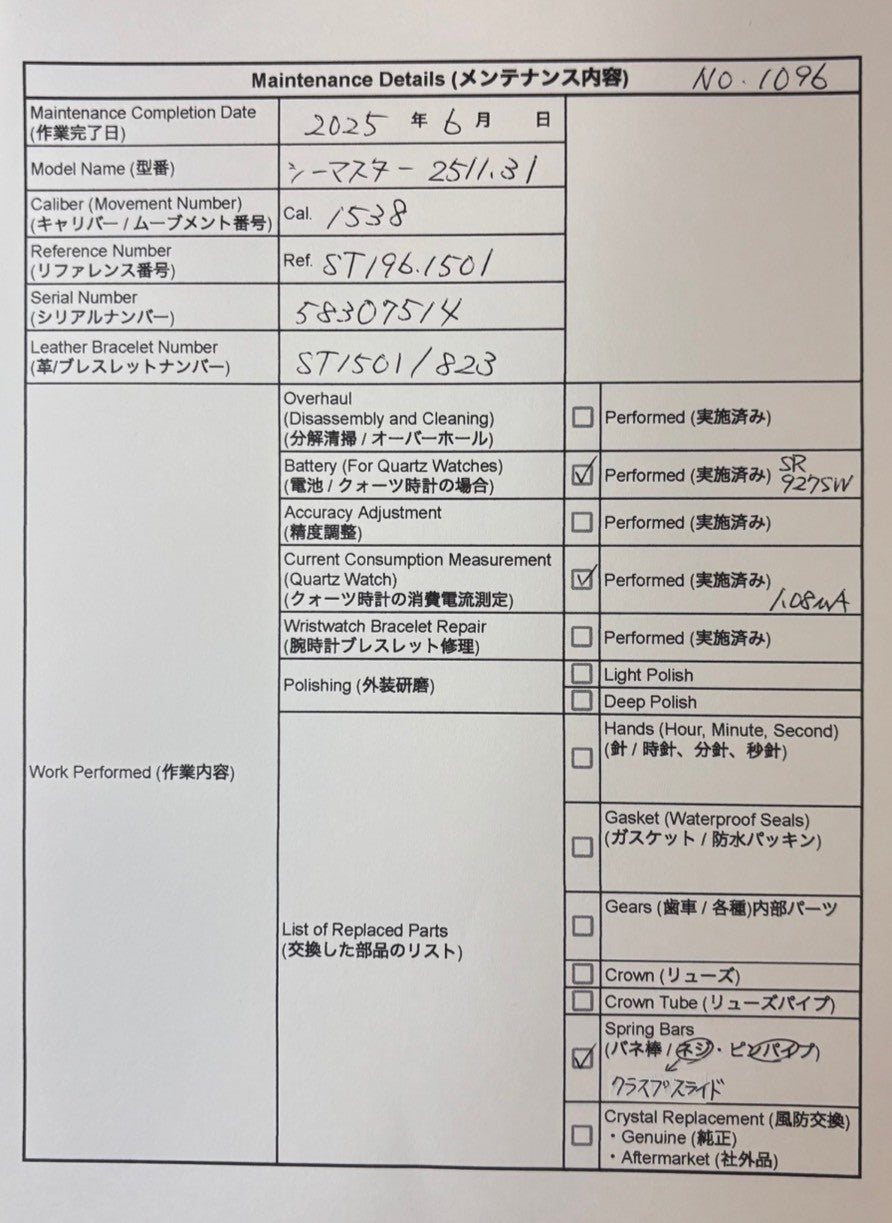 Maintenance Details (メンテナンス内容) NO. 1096
Maintenance Completion Date
(作業完了日)
2025 年 6 月 日
Model Name (型番)
シーマスター 2511.31
Caliber (Movement Number)
(キャリバー / ムーブメント番号)
Cal. 1538
Reference Number
(リファレンス番号)
Ref. ST196.1501
Serial Number
(シリアルナンバー)
58307514
Leather Bracelet Number
(革/ブレスレットナンバー)
ST1501/823
Work Performed (作業内容)
Overhaul
(Disassembly and Cleaning)
(分解清掃 / オーバーホール)
Performed (実施済み)
Battery (For Quartz Watches)
(電池 / クォーツ時計の場合)
Performed (実施済み) SR
927SW
Accuracy Adjustment
(精度調整)
Performed (実施済み)
Current Consumption Measurement
(Quartz Watch)
(クォーツ時計の消費電流測定)
Performed (実施済み)
1.08μA
Wristwatch Bracelet Repair
(腕時計ブレスレット修理)
Performed (実施済み)
Polishing (外装研磨)
Light Polish
Deep Polish
List of Replaced Parts
(交換した部品のリスト)
Hands (Hour, Minute, Second)
(針 / 時針、分針、秒針)
Gasket (Waterproof Seals)
(ガスケット / 防水パッキン)
Gears (歯車 / 各種)内部パーツ
Crown (リューズ)
Crown Tube (リューズパイプ)
Spring Bars
(バネ棒 / ネジ・ピンパイプ)
クラスプスライド
Crystal Replacement (風防交換)
・Genuine (純正)
・Aftermarket (社外品)